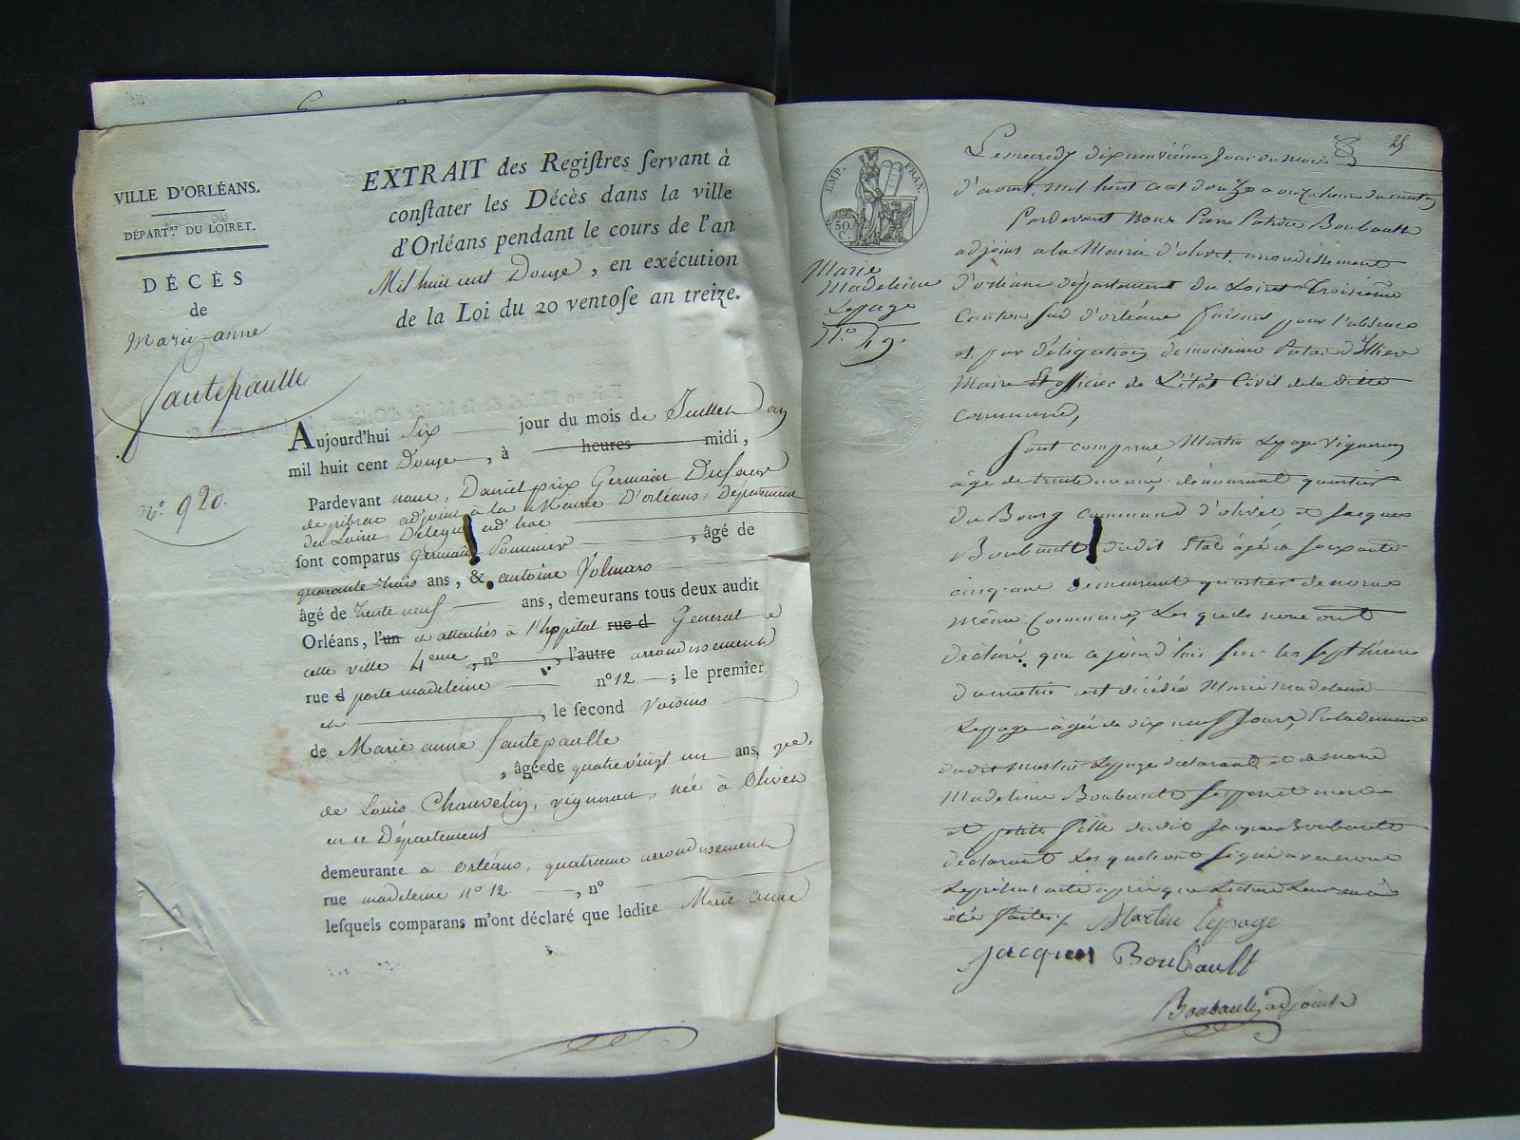 VILLE D'ORLÉANS.
DÉPART.nt DU LOIRET.
DÉCÈS
de
Marie-anne
Sautepaulle
N.o 920.
EXTRAIT des Regiſtres ſervant à
conſtater les Décès dans la ville
d'Orléans pendant le cours de l'an
Mil huit cent Douze, en exécution
de la Loi du 20 ventoſe an treize.
Aujourd'hui Six jour du mois de Juillet an
mil huit cent Douze, à heures midi,
Pardevant nous, Daniel prix Germain Dufaur
de pibrac adjoint à la Mairie D'orléans, Département
du Loiret Délégué ad hoc
ſont comparus germain Pommier, âgé de
quarante trois ans, & antoine Volmaro
âgé de trente neuf ans, demeurans tous deux audit
Orléans, l'un et attachés à l'hopital rue d General de
cette ville 4eme, n.o, l'autre arrondissement
rue d porte madeleine n.o 12; le premier
et, le ſecond voisins
de Marie anne Sautepaulle
, âgée de quatre vingt un ans, ve.
de Louis Chauvelin, vigneron, née à Olivet
en ce Département
demeurante à Orléans, quatrieme arrondissement
rue madeleine n.o 12, n.o
leſquels comparans m'ont déclaré que ladite Marie anne
25
EMP. FRAN.
50. C.
Marie
Madeleine
Lepage
N.o 49.
Le mercredy dix neuvieme Jour du mois
d'aoust mil huit cent douze a onze heures du matin
Pardevant Nous Pierre Patrice Boubault
adjoint a la Mairie d'olivet arrondissement
d'orléans département du Loiret Troisieme
Canton Sud d'orléans faisant pour l'absence
et par déligation de monsieur
Maire Et officier de L'état Civil de la ditte
commune,
Sont comparus Martin Lepage vigneron
âgé de trente demeurant quartier
du Bourg Commune d'olivet et Jacques
Boubault dudit Etat âgé de soixante
cinq ans demeurant quartier de
même Commune, Lesquels nous ont
déclaré que ce jourd'hui sur les sept heures
du matin est décédée Marie Madeleine
Lepage agée de dix neuf Jours
dudit Martin Lepage déclarant et de Marie
Madeleine Boubault Ses pere et mere
et petite fille dudit Jacques Boubault
déclarant Lesquels ont signé avec nous
Le présent acte après que Lecture Leur en a
été faite. Martin lepage
jacques Boubault
Boubault adjoint